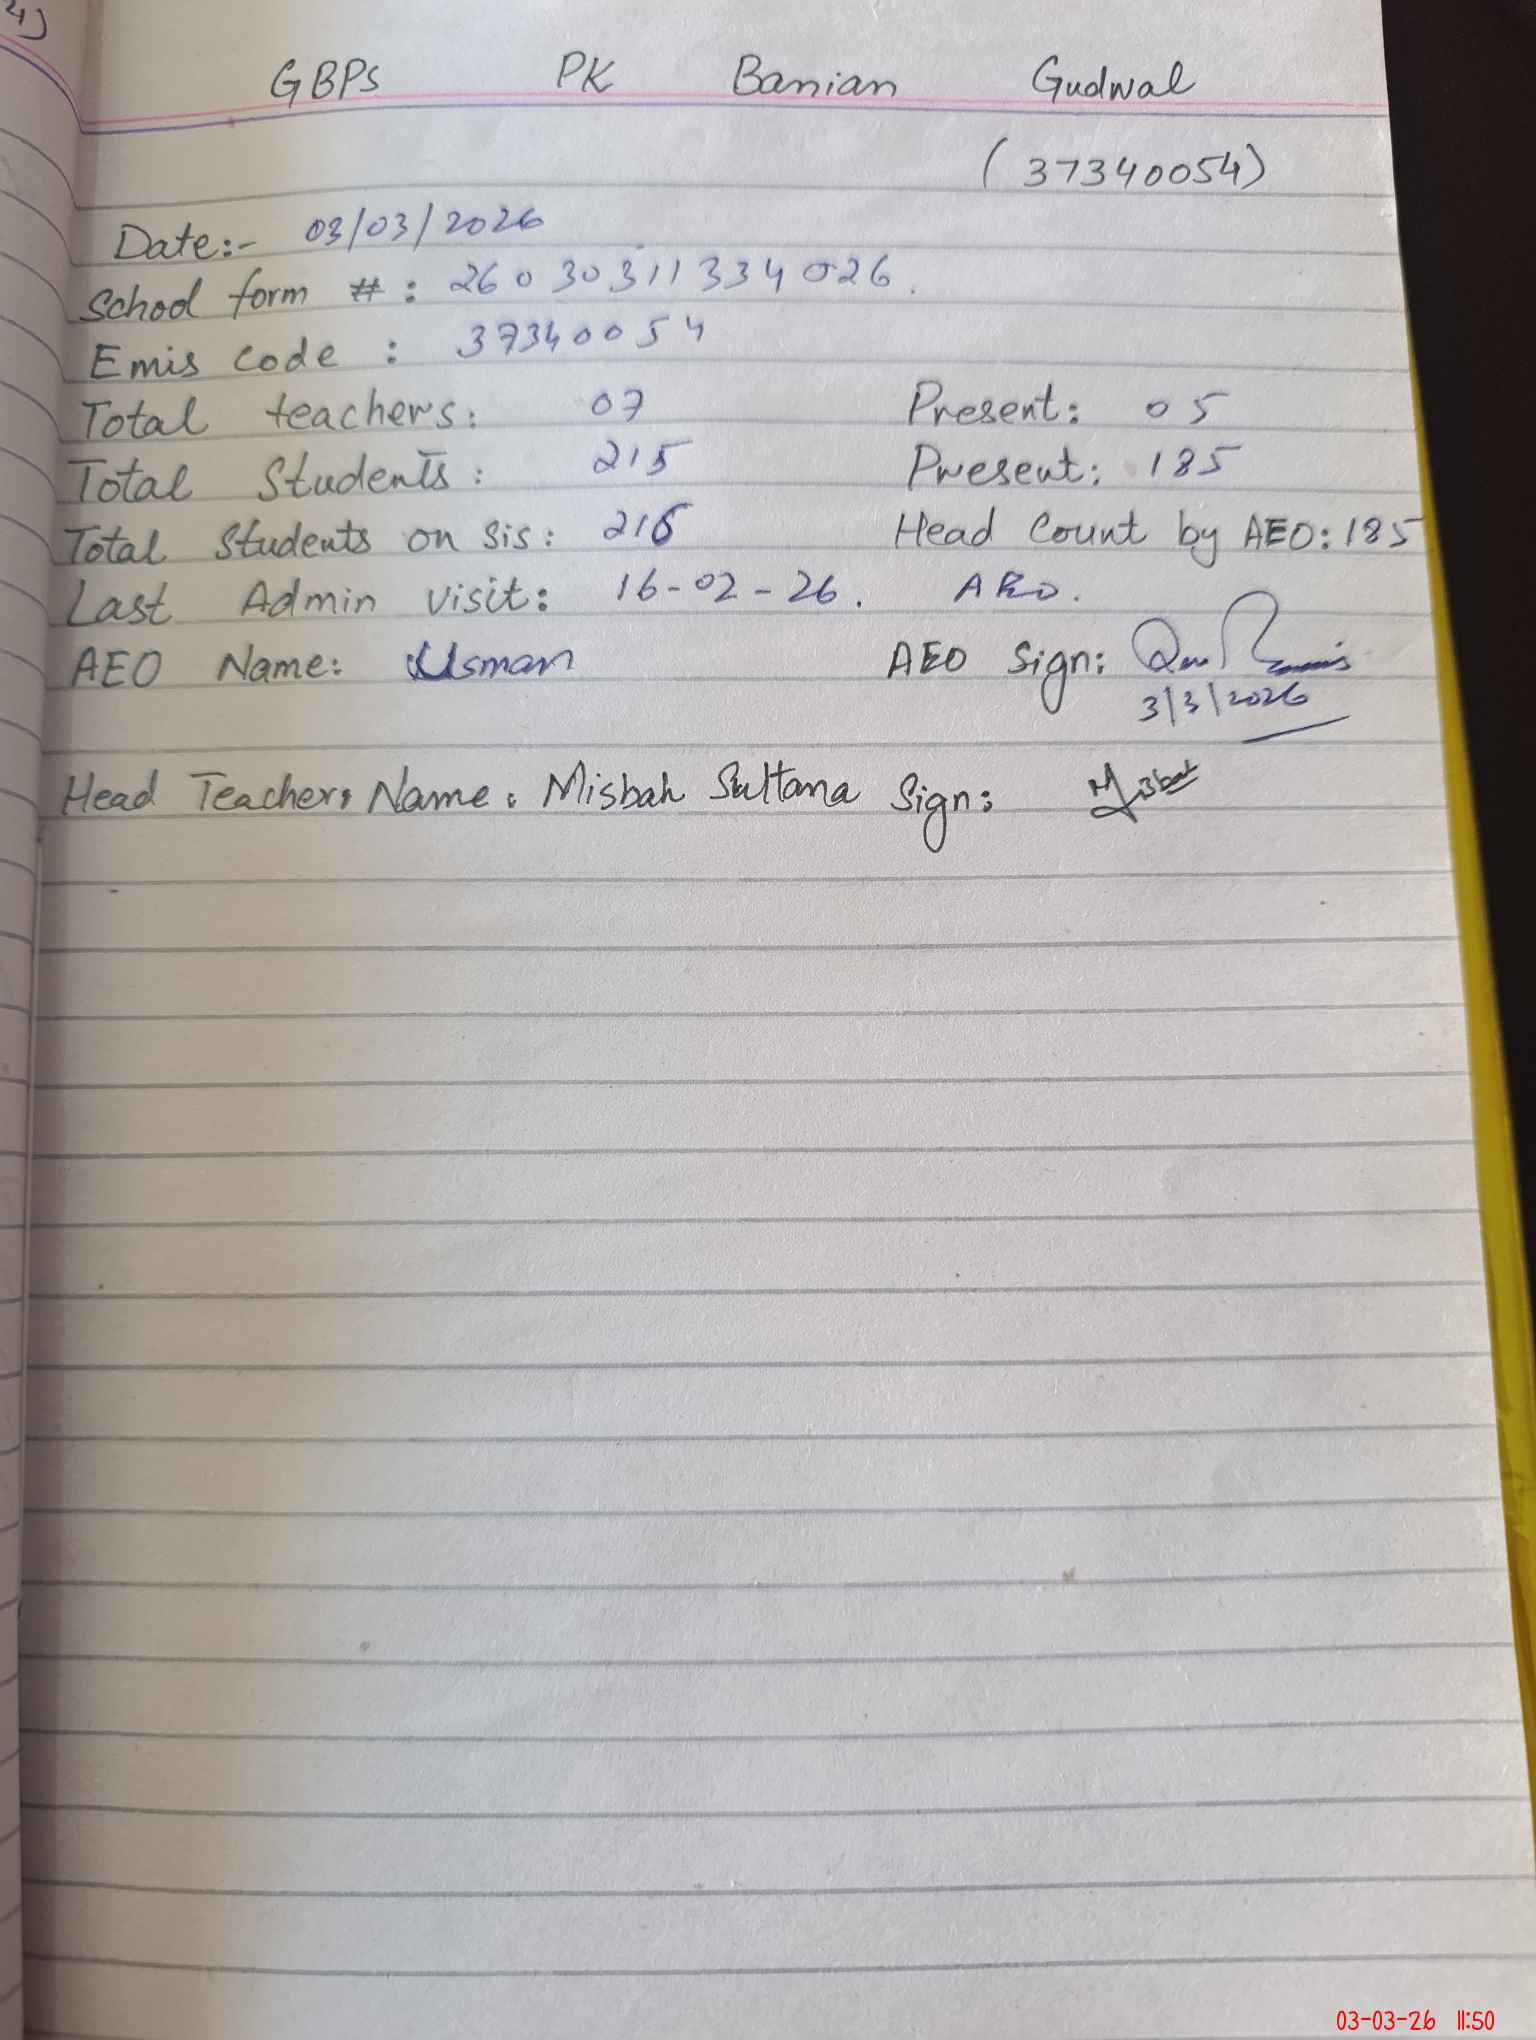 4)
GBPS PK Banian Gudwal
(37340054)
Date:- 03/03/2026
School form # : 26030311334026.
Emis code : 37340054
Total teachers: 07 Present: 05
Total Students: 215 Present: 185
Total Students on Sis: 216 Head Count by AEO: 185
Last Admin visit: 16-02-26. AEO.
AEO Name: Usman AEO Sign:
3/3/2026
Head Teachers Name: Misbah Sultana Sign: Misbah
03-03-26 11:50